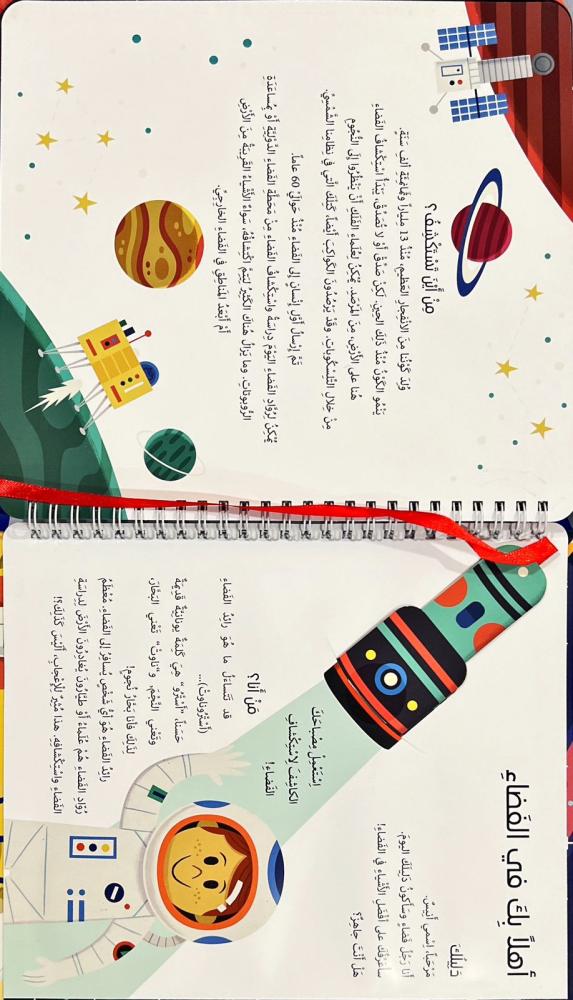 أهلاً بِكَ في الفَضاءِ
دَليلُكَ
مَرْحَباً، إِسْمي أَنيسٌ.
أَنا رَجُلُ فَضاءٍ وَسَأَكونُ دَليلَكَ اليَومَ.
سَأُعَرِّفُكَ على أَفْضَلِ الأَشْياءِ في الفَضاءِ!
هَلْ أَنْتَ جاهِزٌ؟
اِسْتَعْمِلْ مِصْباحَكَ
الكاشِفَ لاسْتِكْشافِ
الفَضاءِ!
مَنْ أَنا؟
قد تَتَساءَلُ ما هُوَ رائِدُ الفَضاءِ
(أَسْتْرُوناوتْ)...
حَسَناً، "أَسْتْرُو" هِيَ كَلِمَةٌ يونانِيَّةٌ قَديمَةٌ
وَتَعْني النَّجْمَ، وَ"ناوتْ" تَعْني البَحّارَ،
لِذَلِكَ فَأَنا بَحّارُ نُجومٍ!
رائِدُ الفَضاءِ هُوَ أَيُّ شَخْصٍ يُسافِرُ إِلى الفَضاءِ. مُعْظَمُ
رُوّادِ الفَضاءِ هُمْ عُلَماءُ أَوْ طَيّارُونَ يُغادِرُونَ الأَرْضَ لِدِراسَةِ
الفَضاءِ واسْتِكْشافِهِ. هذا مُثيرٌ لِلْإِعْجابِ، أَلَيْسَ كَذَلِكَ؟!
مِنْ أَيْنَ نَسْتَكْشِفُ؟
وُلِدَ كَوْنُنا مِنَ الانْفِجارِ العَظيمِ، مُنْذُ 13 مِلْياراً وَثَمانِمِئَةِ أَلْفِ سَنَةٍ.
يَنْمو الكَوْنُ مُنْذُ ذَلِكَ الحينِ. لَكِنْ صَدِّقْ أَوْ لا تُصَدِّقْ، يَبْدَأُ اسْتِكْشافُ الفَضاءِ
هُنا على الأَرْضِ، مِنَ المَرْصَدِ. يُمْكِنُ لِعُلَماءِ الفَلَكِ أَنْ يَنْظُروا إِلى النُّجومِ
مِنْ خِلالِ التِّلِسْكوباتِ، وَقَدْ يَرْصُدُونَ الكَواكِبَ أَيْضاً، كَتِلْكَ الَّتي في نِظامِنا الشَّمْسِيِّ.
تَمَّ إِرْسالُ أَوَّلِ إِنْسانٍ إِلى الفَضاءِ مُنْذُ حَوالَيْ 60 عاماً.
يُمْكِنُ لِرُوّادِ الفَضاءِ اليَوْمَ دِراسَةُ واسْتِكْشافُ الفَضاءِ مِنْ مَحَطَّةِ الفَضاءِ الدُّوَلِيَّةِ أَوْ بِمُساعَدَةِ
الرُّوبوتاتِ. وما يَزالُ هُناكَ الكَثيرُ لِيَتِمَّ اكْتِشافُهُ، سَواءٌ الأَشْياءُ القَريبَةُ مِنَ الأَرْضِ
أَمْ أَبْعَدُ المَناطِقِ في الفَضاءِ الخارِجِيِّ.